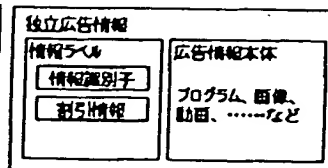 独立広告情報
情報ラベル
情報識別子
割引情報
広告情報本体
プログラム、画像、
動画、……など